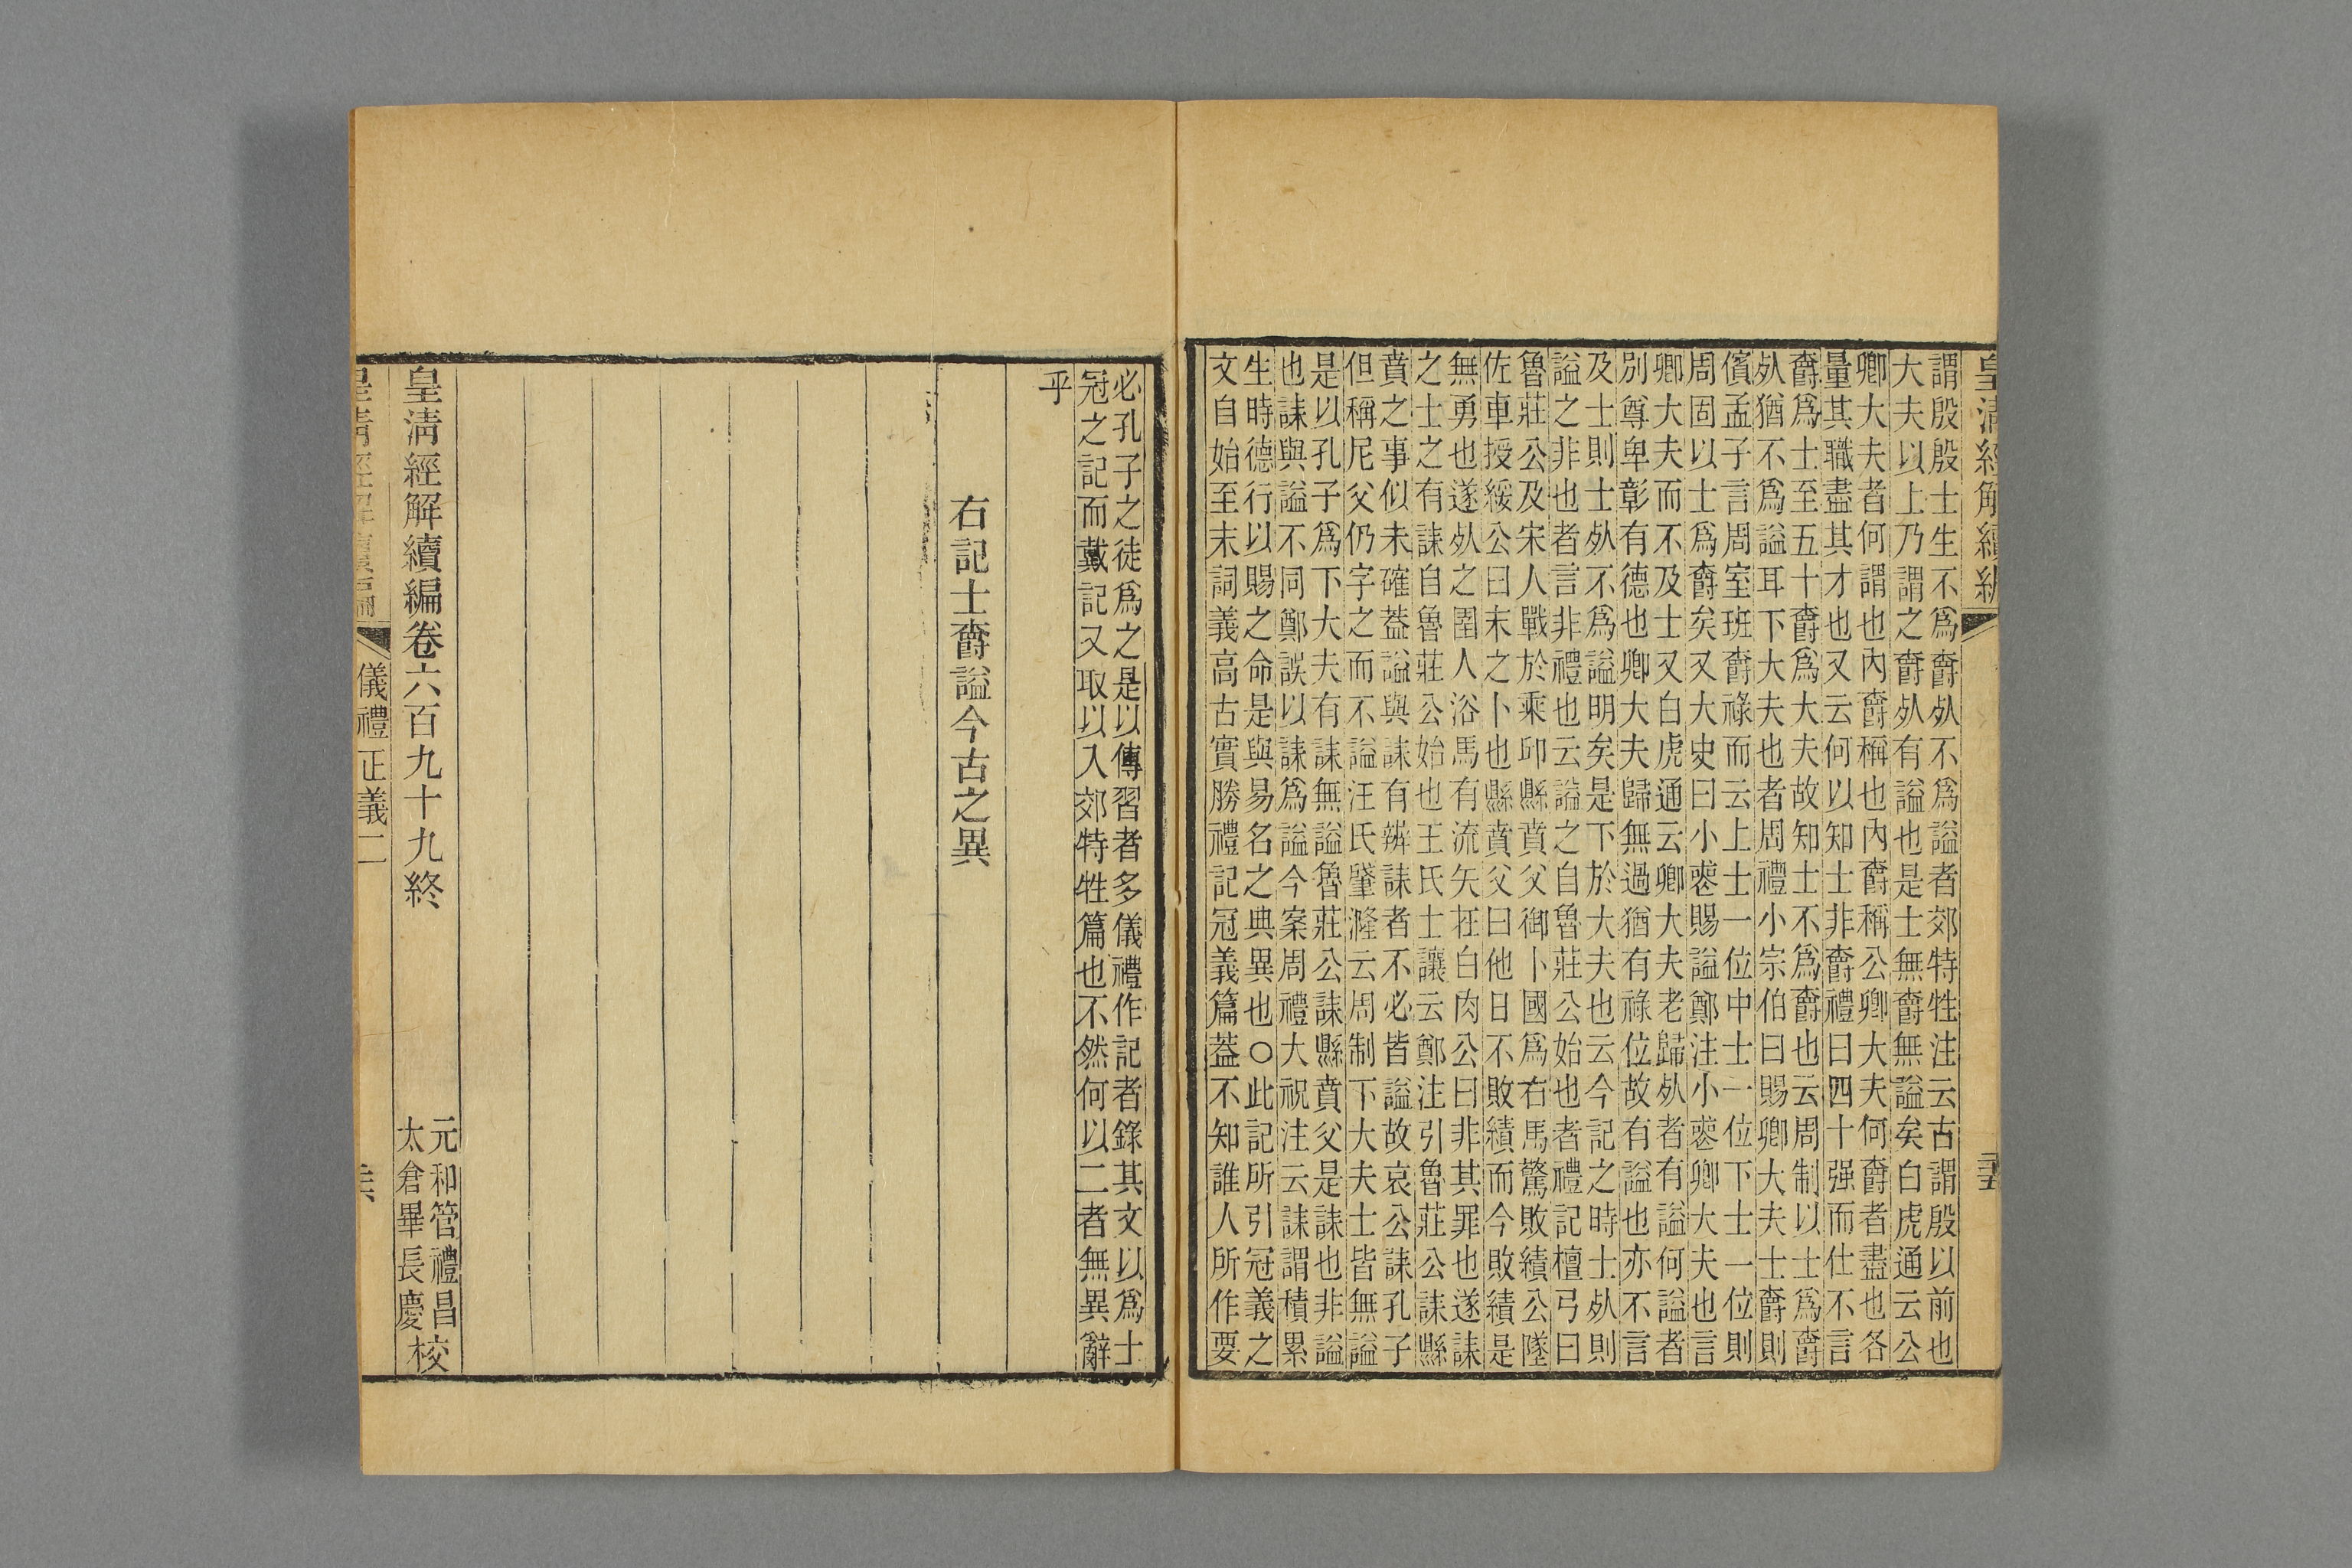 皇清經解續編
謂殷殷士生不爲𣝣𣦸不爲謚者郊特牲注云古謂殷以前也
大夫以上乃謂之𣝣𣦸有謚也是士無𣝣無謚矣白虎通云公
卿大夫者何謂也內𣝣稱也內𣝣稱公卿大夫何𣝣者盡也各
量其職盡其才也又云何以知士非𣝣禮曰四十强而仕不言
𣝣爲士至五十𣝣爲大夫故知士不爲𣝣也云周制以士爲𣝣
𣦸猶不爲謚耳下大夫也者周禮小宗伯曰賜卿大夫士𣝣則
儐孟子言周室班𣝣祿而云上士一位中士一位下士一位則
周固以士爲𣝣矣又大史曰小喪賜謚鄭注小喪卿大夫也言
卿大夫而不及士又白虎通云卿大夫老歸𣦸者有謚何謚者
別尊卑彰有德也卿大夫歸無過猶有祿位故有謚也亦不言
及士則士𣦸不爲謚明矣是下於大夫也云今記之時士𣦸則
謚之非也者言非禮也云謚之自魯莊公始也者禮記檀弓曰
魯莊公及宋人戰於乘邱縣賁父御卜國爲右馬驚敗績公墜
佐車授綏公曰末之卜也縣賁父曰他日不敗績而今敗績是
無勇也遂𣦸之圉人浴馬有流矢在白肉公曰非其罪也遂誄
之士之有誄自魯莊公始也王氏士讓云鄭注引魯莊公誄縣
賁之事似未確葢謚與誄有辨誄者不必皆謚故哀公誄孔子
但稱尼父仍字之而不謚汪氏肇漋云周制下大夫士皆無謚
是以孔子爲下大夫有誄無謚魯莊公誄縣賁父是誄也非謚
也誄與謚不同鄭誤以誄爲謚今案周禮大祝注云誄謂積累
生時德行以賜之命是與易名之典異也○此記所引冠義之
文自始至末詞義高古實勝禮記冠義篇葢不知誰人所作要
必孔子之徒爲之是以傳習者多儀禮作記者錄其文以爲士
冠之記而戴記又取以入郊特牲篇也不然何以二者無異辭
乎
右記士𣝣謚今古之異
皇清經解續編卷六百九十九終
元和管禮昌
太倉畢長慶校
儀禮正義二